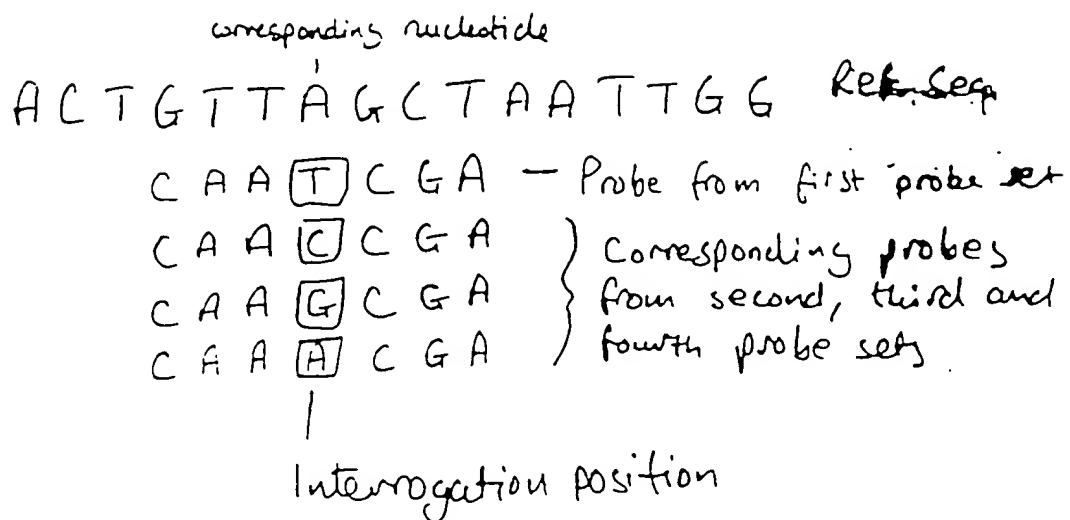 corresponding nucleotide
A C T G T T A G C T A A T T G G Ref. Seq
C A A T C G A — Probe from first probe set
C A A C C G A
C A A G C G A
C A A A C G A
Corresponding probes
from second, third and
fourth probe sets.
Interrogation position